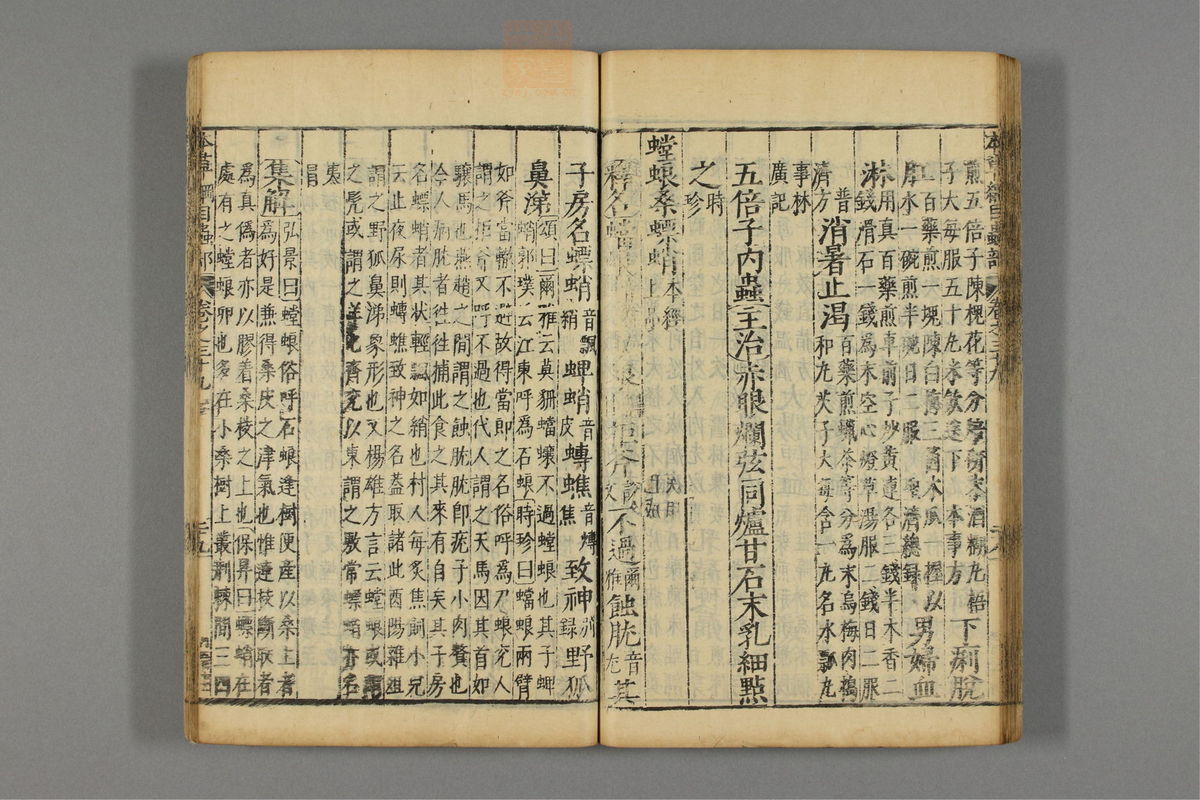 煎五倍子陳槐花等分爲末酒糊丸梧下痢脫
子大每服五十丸米飲送下本事方
肛百藥煎一塊陳白礬三錢水一碗煎半碗日二服聖濟總錄男婦血
淋用真百藥煎車前子炒黃連各三錢半木香二
錢滑石一錢爲末空心燈草湯服二錢日二服
普濟方消暑止渴百藥煎蠟茶等分爲末烏梅肉搗
和丸芡子大每含一丸名水瓢丸
事林廣記
五倍子內蟲主治赤眼爛弦同爐甘石末乳細點
之時珍
螳蜋桑螵蛸本經上品
釋名不過爾雅蝕肬音尤其
子房名螵蛸音飄綃蜱蛸音皮蟭音焦致神別錄野狐
鼻涕頌曰爾雅云莫貈蟷蠰不過螳蜋也其子蜱
蛸郭璞云江東呼爲石蜋時珍曰蟷蜋兩臂
如斧當轍不避故得當郎之名俗呼爲刀蜋兖人
謂之拒斧又呼不過也代人謂之天馬因其首如
驤馬也燕趙之間謂之蝕肬肬即疣子小肉贅也
今人病肬者往往捕此食之其來有自矣其子房
名螵蛸者其狀輕飄如綃也村人每炙焦飼小兒
云止夜尿則蟭致神之名蓋取諸此酉陽雜俎
謂之野狐鼻涕象形也又楊雄方言云螳蜋或謂
之髦或謂之齊兖以東謂之敷常螵蛸亦名
集解弘景曰螳蜋俗呼石蜋逢樹便產以桑上者
爲好是兼得桑皮之津氣也惟連枝斷取者
爲真僞者亦以膠着桑枝之上也保昇曰螵蛸在
處有之螳蜋卵也多在小桑樹上叢荆棘間三四